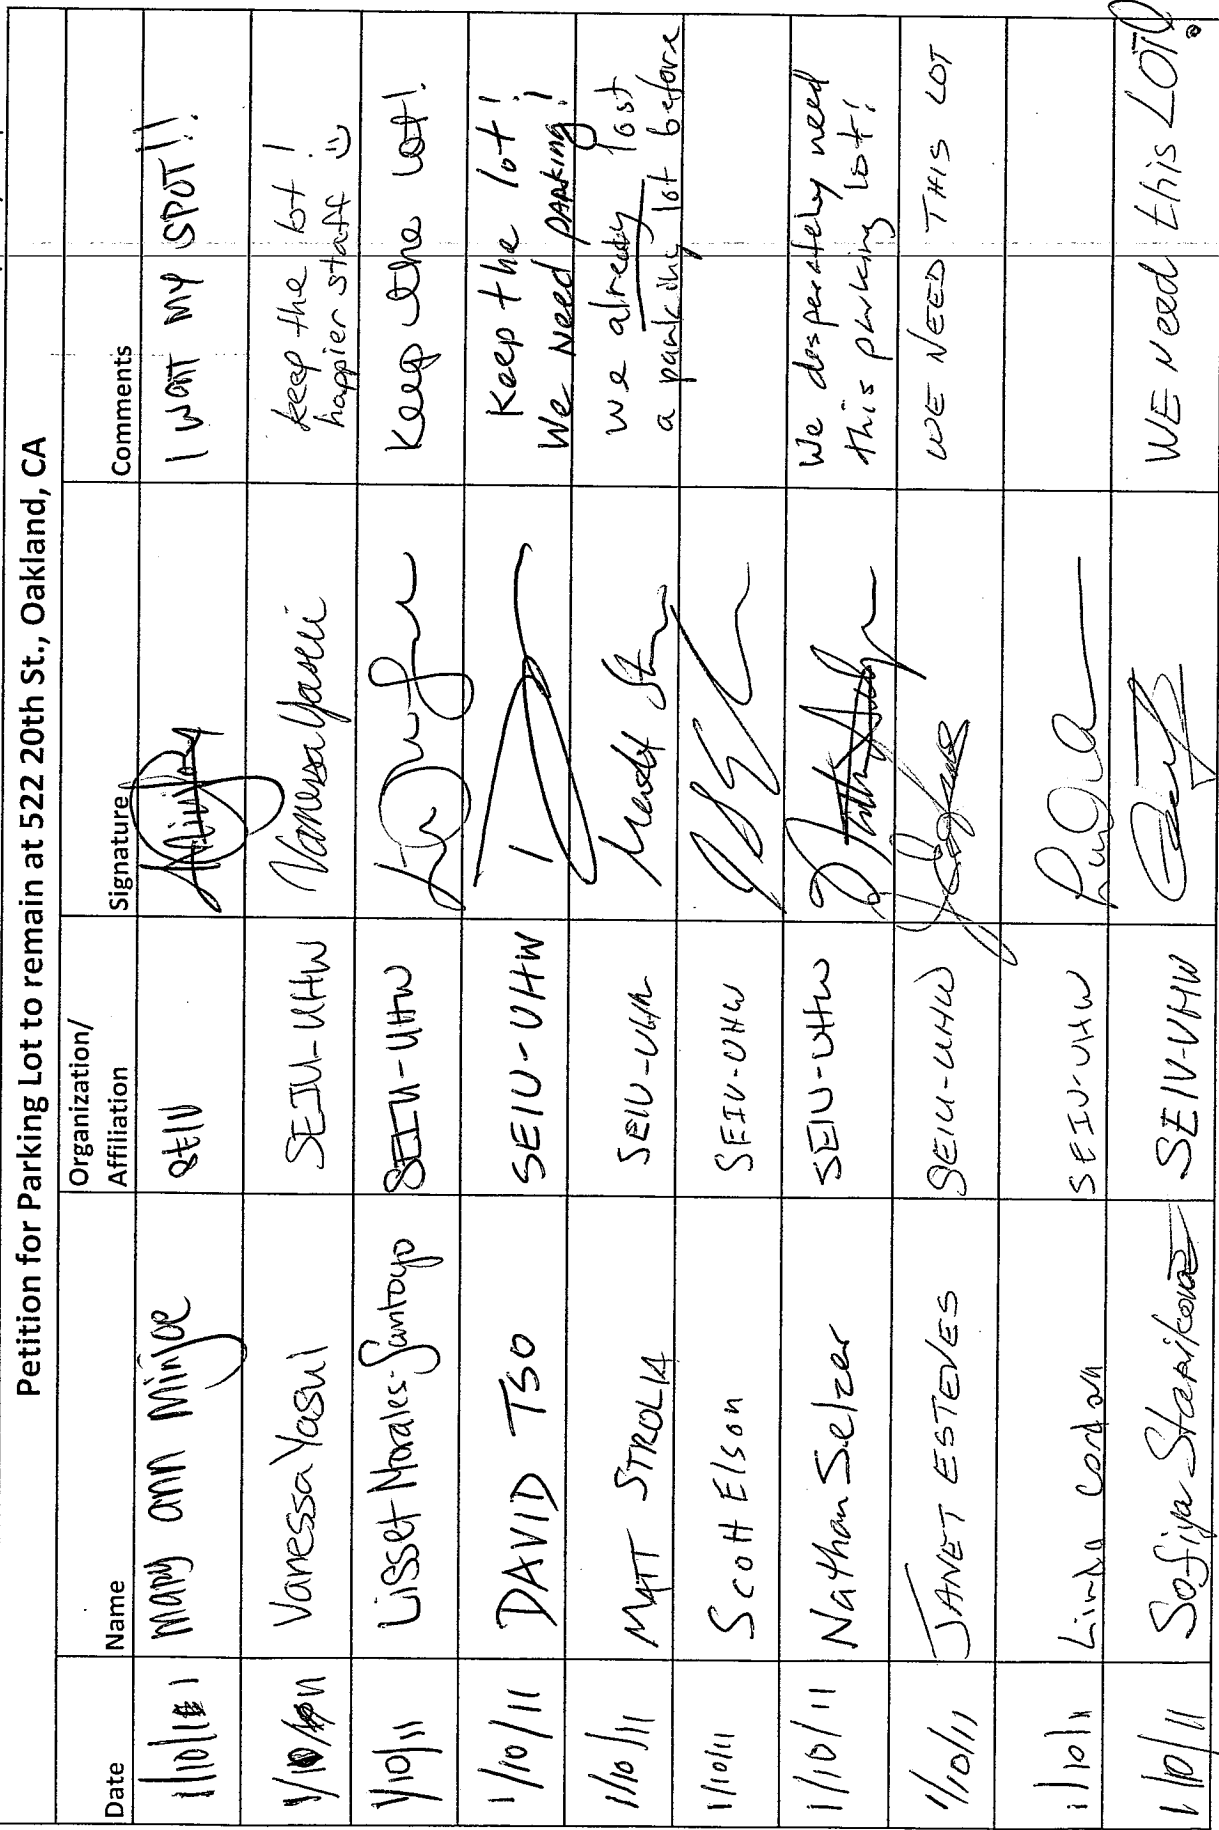 Petition for Parking Lot to remain at 522 20th St., Oakland, CA
Date Name Organization/ Affiliation Signature Comments
1/10/11 Mary ann Minjoe SEIU I want MY SPOT!!
1/10/11 Vanessa Yasul SEIU-UHW Keep the lot!
happier staff
1/10/11 Lisset Morales-Santoyo SEIU-UHW Keep the lot!
1/10/11 DAVID TSO SEIU-UHW Keep the lot!
We Need PARKING!
1/10/11 MATT STROLIA SEIU-UHW we already lost
a parking lot before
1/10/11 Scott Elson SEIU-UHW
1/10/11 Nathan Selzer SEIU-UHW We desperately need
this parking lot!
1/10/11 JANET ESTEVES SEIU-UHW WE NEED THIS LOT
1/10/11 Linda Cordova SEIU-UHW
1/10/11 Sofiya Starikova SEIU-UHW WE Need this LOT!